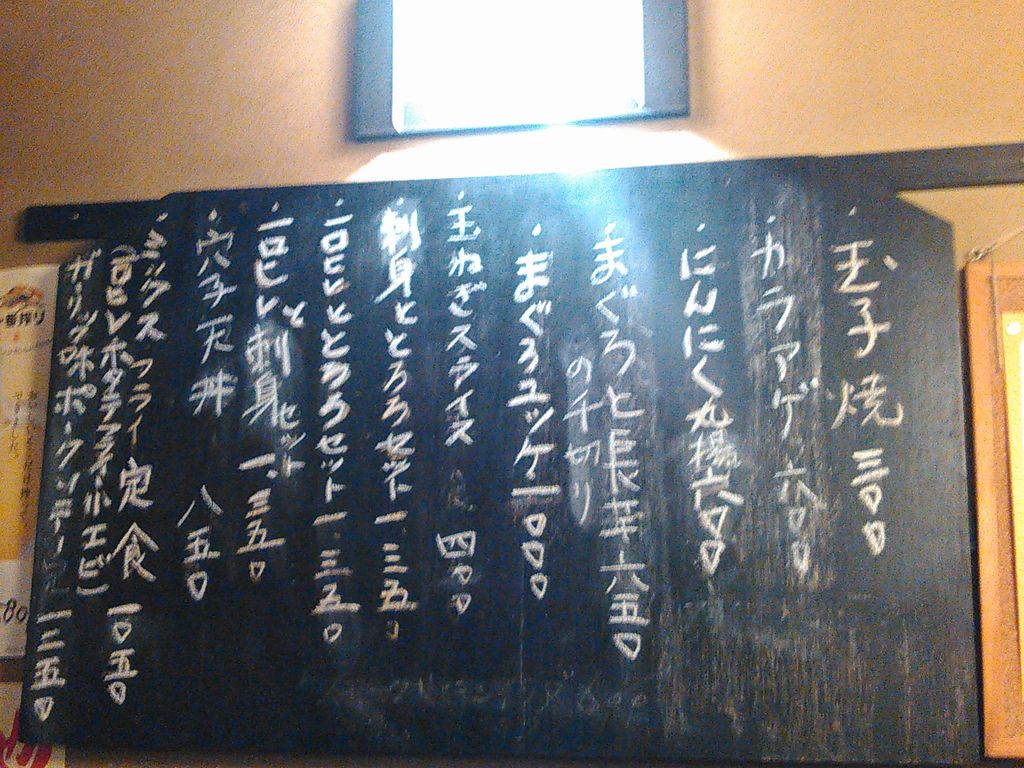 ・玉子焼 三〇〇
・カラアゲ 六〇〇
・にんにく丸揚六〇〇
・まぐろと長芋六五〇
の千切り
・まぐろユッケ一〇〇〇
・玉ねぎスライス 四〇〇
・刺身ととろろセット一、三五〇
・一口ヒレととろろセット一、三五〇
・一口ヒレと刺身セット一、三五〇
・穴子天丼 八五〇
・ミックスフライ定食一〇五〇
(一口ヒレ
小エビ)
・ガーリック味ポークソテー
一二五〇
一番搾り
80